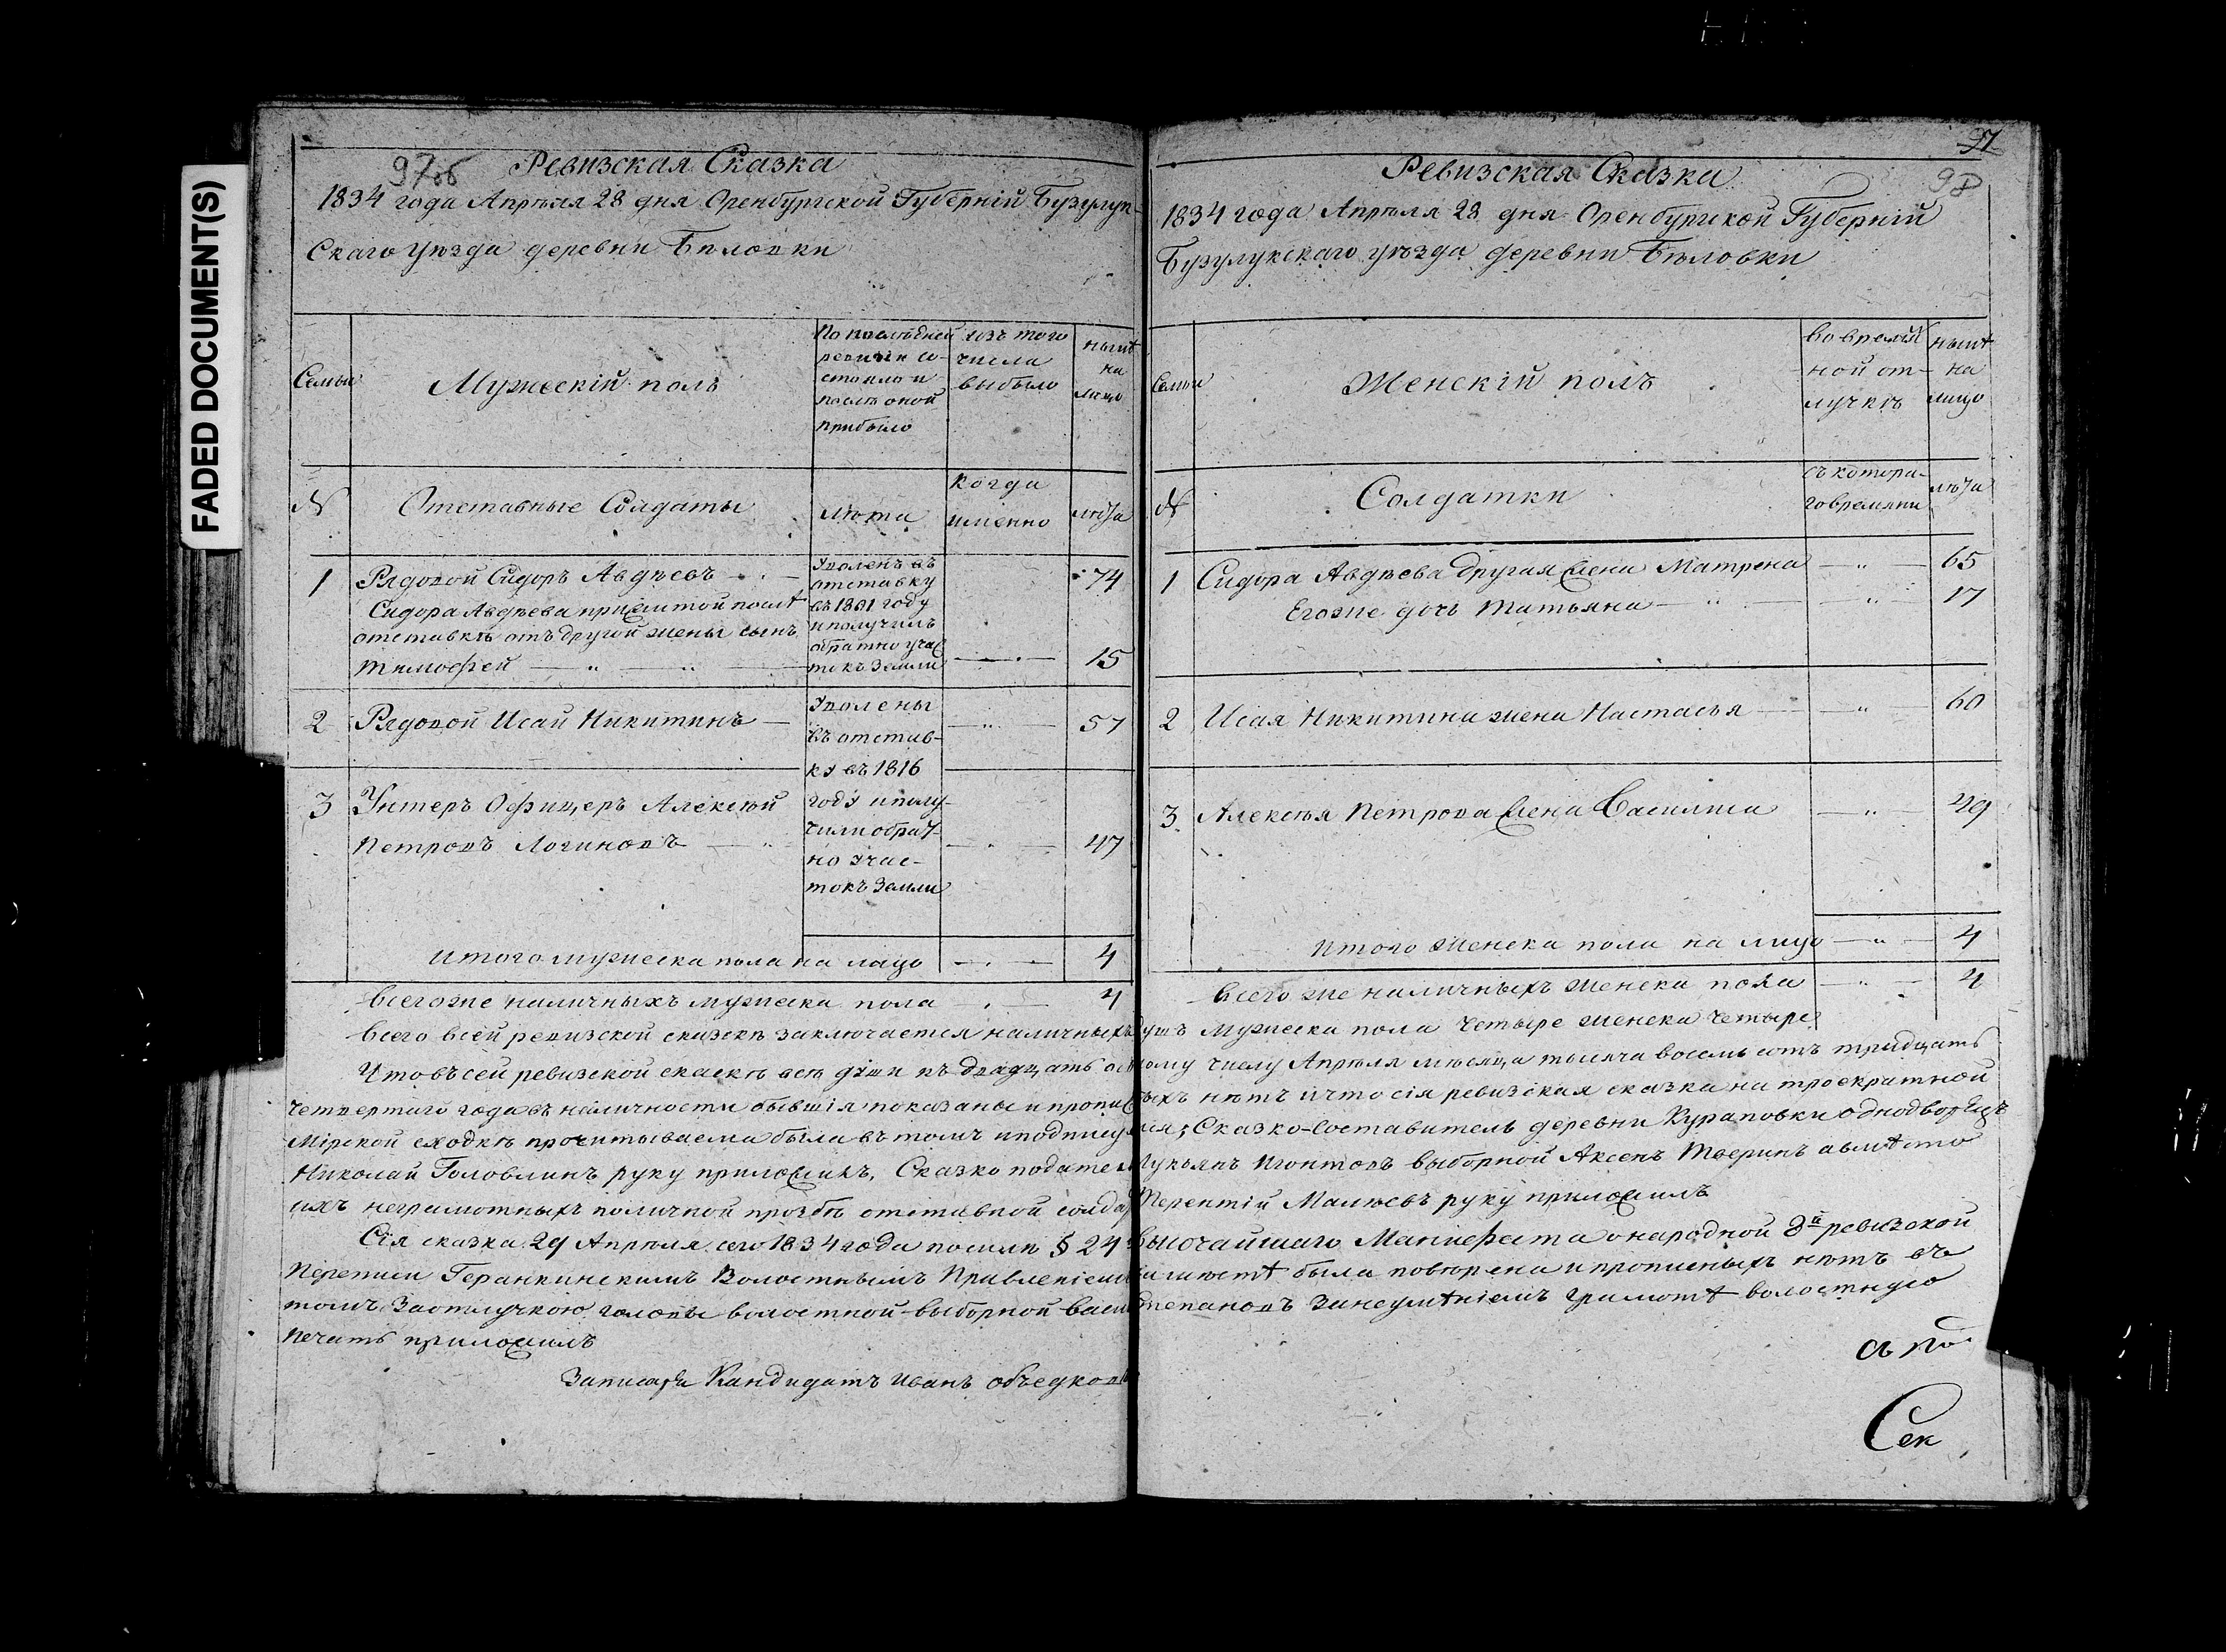 FADED DOCUMENT(S)
97об
Ревизская Сказка
1834 года Апрѣля 28 дня Оренбургской Губерніи Бузулук-
скаго уѣзда деревни Бѣловки
Семьи
Мужескій полъ
По послѣдней
ревизіи со-
стояло и
послѣ оной
прибыло
изъ того
числа
выбыло
нынѣ
на
лицо
№
Отставные Солдаты
лѣта
когда
именно
лѣта
1
Рядовой Сидоръ Авдѣевъ
74
Сидора Авдѣева прижитой послѣ
отставкѣ отъ другой жены сынъ
Тимофей
15
Уволенъ въ
отставку
въ 1801 году
и получилъ
обратно учас
токъ земли
2
Рядовой Исай Никитинъ
57
3
Унтеръ Офицеръ Алексѣй
Петровъ Логиновъ
47
Уволены
въ отстав-
ку въ 1816
году и полу-
чили обрат-
но учас-
токъ земли
Итого мужеска пола на лицо
4
Всего же наличныхъ мужеска пола
4
97
98
Ревизская Сказка
1834 года Апрѣля 28 дня Оренбургской Губерніи
Бузулукскаго уѣзда деревни Бѣловки
Семьи
Женскій полъ
во времян
ной от-
лучкѣ
нынѣ
на
лицо
№
Солдатки
съ котора-
го времяни
лѣта
1
Сидора Авдѣева другая жена Матрена
65
Егоже дочь Татьяна
17
2
Исая Никитина жена Настасья
60
3
Алексѣя Петрова жена Василиса
49
Итого женска пола на лицо
4
Всего же наличныхъ женска пола
4
Всего в сей ревизской сказкѣ заключается наличныхъ душъ мужеска пола четыре женска четыре
Что въ сей ревизской скаскѣ всѣ души къ двадцать осмому числу Апрѣля мѣсяца тысяча восемь сотъ тридцать
четвертаго года въ наличности бывшія показаны и прописныхъ нѣтъ и что сія ревизская сказка на троекратной
Мірской сходкѣ прочитываема была въ томъ и подписуемся, Сказко-Составитель деревни Кураповки однодворецъ
Николай Головлинъ руку приложилъ, Сказко податели Лукьянъ выборной Аксенъ Тверинъ а вмѣсто
ихъ неграмотныхъ по личной прозбѣ отставной солдатъ Терентій Малюевъ руку приложилъ
Сія сказка 29 Апрѣля сего 1834 года по силѣ § 24 высочайшаго Манифеста о народной 8й ревизской
переписи Геранкинскимъ Волостнымъ Правленіемъ на мѣстѣ была повѣрена и прописныхъ нѣтъ въ
томъ За отлучкою головы волостной выборной Степановъ за неумѣніемъ грамотѣ волостную
печать приложилъ
За писаря Кандидатъ Иванъ Объедковъ
а по
Сек